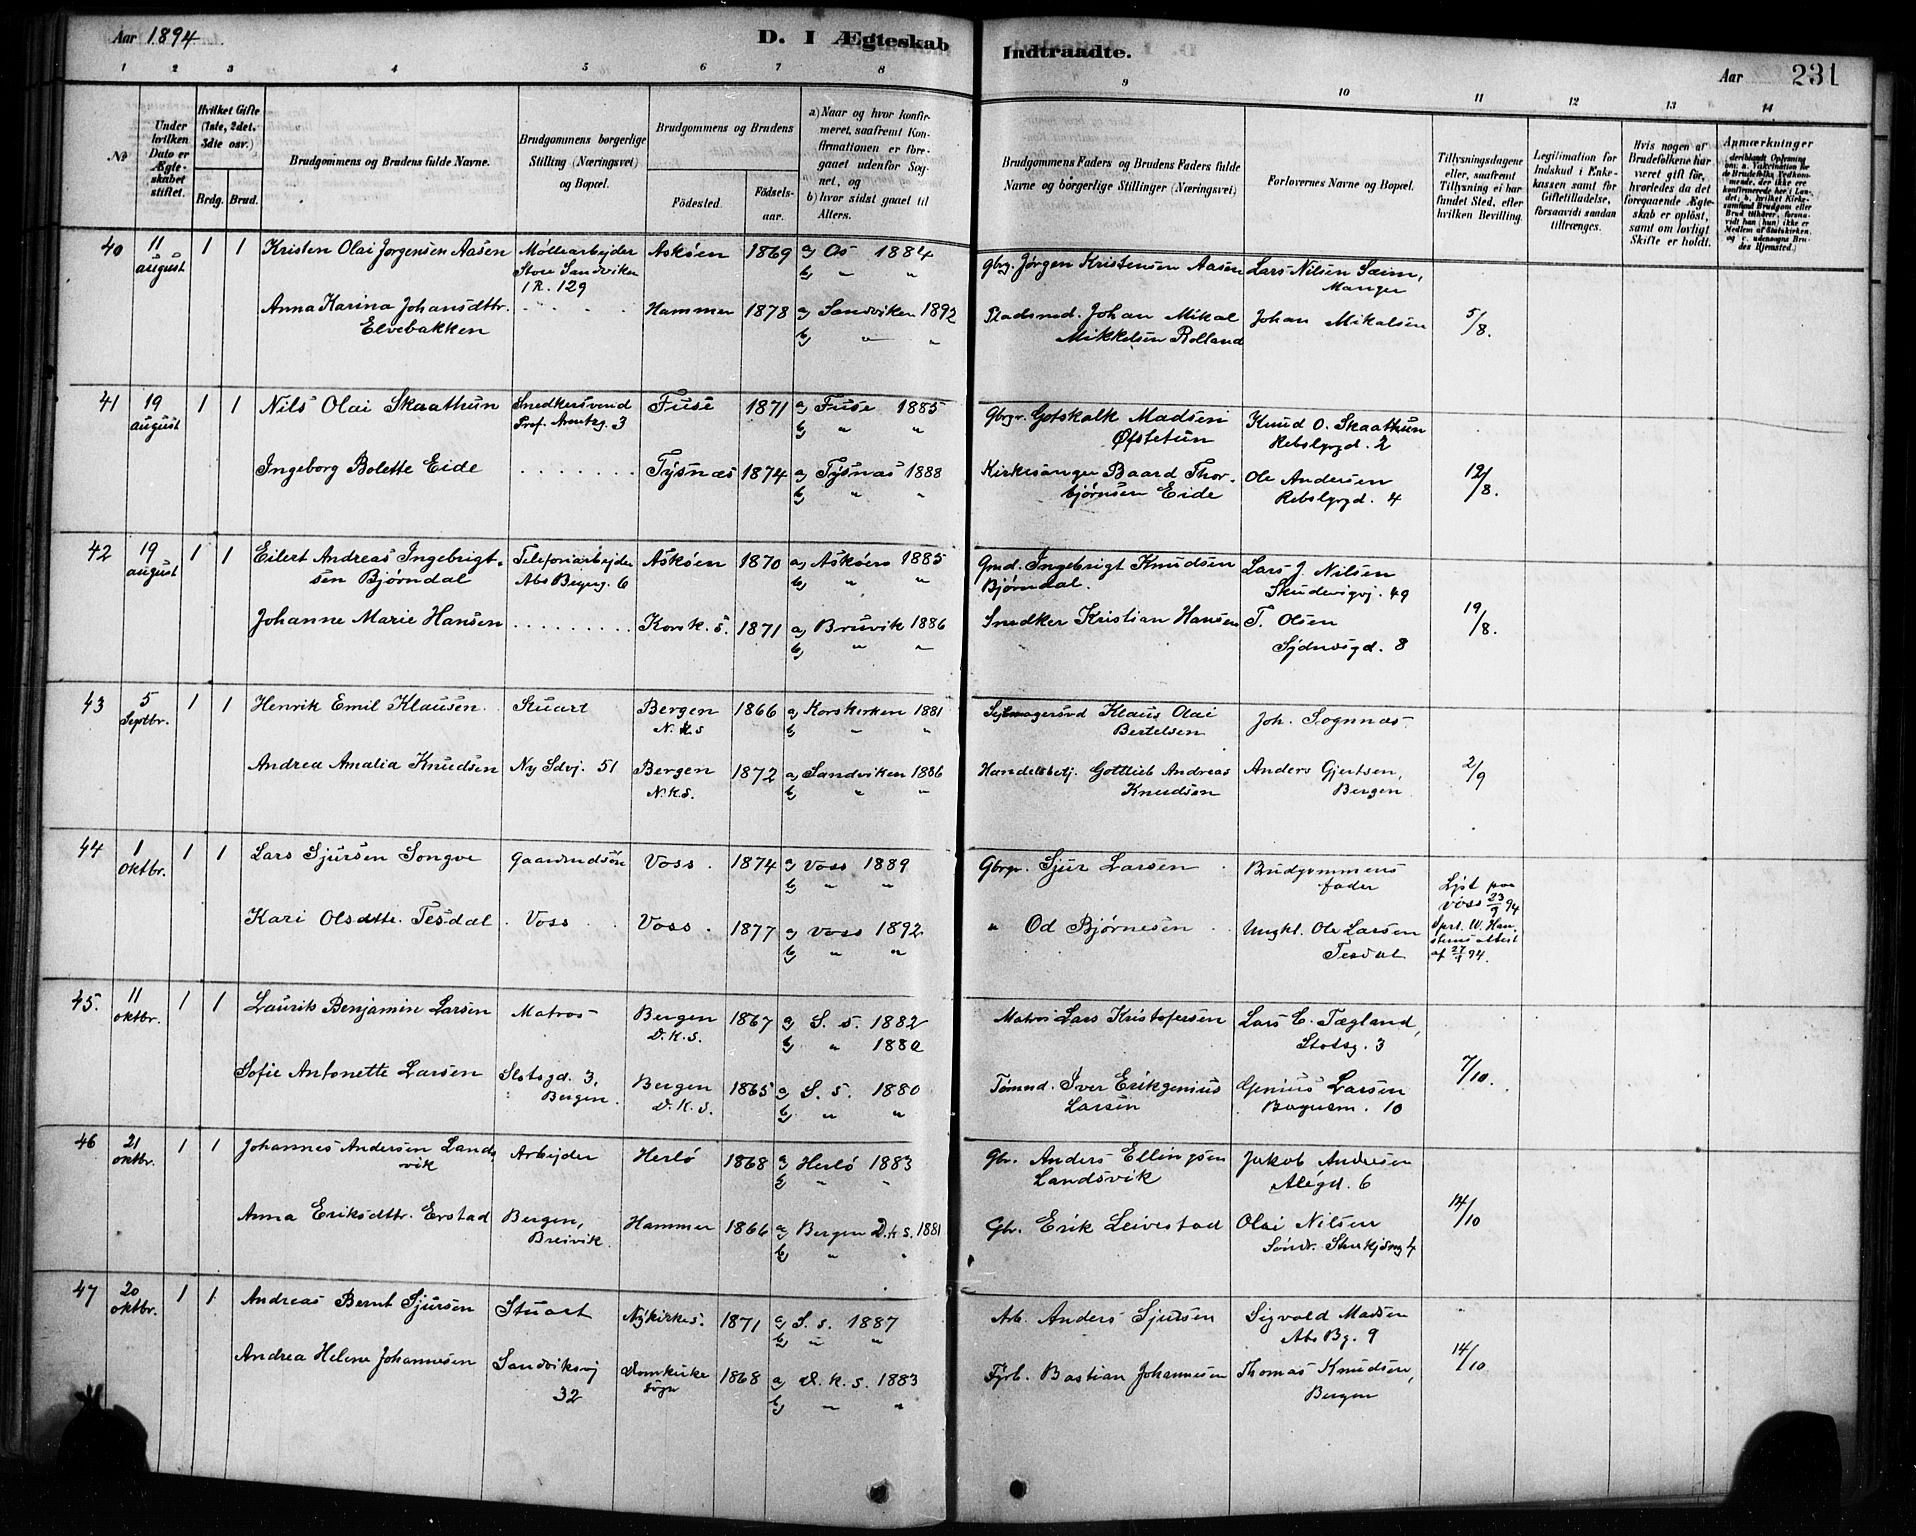 Aar 1894
D. I Ægteskab
Indtraadte.
Aar 231
1 2 3 4 5 6 7 8 9 10 11 12 13 14
No
Under hvilken Dato er Ægteskabet stiftet.
Hvilket Gifte (1ste, 2det, 3dte osv.)
Brdg. Brud.
Brudgommens og Brudens fulde Navne.
Brudgommens borgerlige Stilling (Næringsvei) og Bopæl.
Brudgommens og Brudens
Fødested.
Fødselsaar.
a) Naar og hvor konfirmeret, saafremt Konfirmationen er foregaaet udenfor Sognet, og
b) hvor sidst gaaet til Alters.
Brudgommens Faders og Brudens Faders fulde Navne og borgerlige Stillinger (Næringsvei)
Forlovernes Navne og Bopæl.
Tillysningsdagene eller, saafremt Tillysning ei har fundet Sted, efter hvilken Bevilling.
Legitimation for Indskud i Enkekassen samt for Giftetilladelse, forsaavidt saadan tiltrænges.
Hvis nogen af Brudefolkene har været gift før, hvorledes da det foregaaende Ægteskab er opløst, samt om lovligt Skifte er holdt.
Anmærkninger
40 11 august 1 1 Kristen Olai Jørgensen Aasen Møllearbejder Store Sandviken 1 R. 129 Askøen 1869 a) Os 1884 b) " " Gbrg. Jørgen Kristensen Aasen Lars Nilsen Sæim, Manger
Anna Karina Johansdtr. Elvebakken Hammer 1878 a) Sandviken 1892 b) " " Pladsmd. Johan Mikal Mikkelsen Rolland Johan Mikalsen 5/8.
41 19 august 1 1 Nils Olai Skaathun Snedkersvend Fuse 1871 a) Fuse 1885 b) " " Gbrgr. Gotskalk Madsen Øfstetun Knud O. Skaathun Rebslgrgd. 2
Ingeborg Bolette Eide Tysnæs 1874 a) Tysnæs 1888 b) " " Kirkesanger Baard Thorbjørnsen Eide Ole Andersen Rebslgrgd. 4 12/8.
42 19 august 1 1 Eilert Andreas Ingebrigtsen Bjørndal Telefonarbejder Abs Begsg. 6 Askøen 1870 a) Askøen 1885 b) " " Gmd. Ingebrigt Knudsen Bjørndal. Lars J. Nilsen Skudevigvj. 49
Johanne Marie Hansen Korsk. s. 1871 a) Bruvik 1886 b) " " Snedker Kristian Hansen T. Olsen Sydnæsgd. 8 19/8.
43 5 Septbr. 1 1 Henrik Emil Klausen Stuart Bergen N.k.s 1866 a) Korskirken 1881 b) " " Sejlmagersvd Klaus Olai Bertelsen Joh. Sognnæs
Andrea Amalia Knudsen Ny Sdvj. 51 Bergen N.k.s. 1872 a) Sandviken 1886 b) " " Handelsbetj. Gottlieb Andreas Knudsen Anders Gjertsen, Bergen 2/9
44 1 Oktbr. 1 1 Lars Sjursen Songve Gaardmdsøn Voss. 1874 a) Voss 1889 b) " " Gbrgr. Sjur Larsen Brudgommens fader Lyst paa Voss 23/9 94
Kari Olsdttr. Tesdal Voss Voss. 1877 a) Voss 1892 b) " " " Od Bjørnesen Ungkl. Ole Larsen Tesdal Sprl. W. Hansteens Attest af 27/ 94.
45. 11 oktbr. 1 1 Laurits Benjamin Larsen Matros Bergen D.k.s. 1867 a) S. s. 1882 b) " 1882 Matros Lars Kristofersen Lars E. Tægland, Slotsg. 3
Sofie Antonette Larsen Slotsgd. 3, Bergen. Bergen D.K.S. 1865 a) S. s. 1880 b) " " Tømmd. Iver Erikgenius Larsen Genius Larsen 10 7/10.
46 21 oktbr. 1 1 Johannes Andersen Landsvik Arbejder Herlø 1868 a) Herlø 1883 b) " " Gbr. Anders Ellingsen Landsvik Jakob Andersen 6
Anna Eriksdtr. Erstad Bergen, Breivik. Hammer 1866 a) Bergen D.k.s. 1881 b) " " Gbr. Erik Leivestad Olai Nilsen 4 14/10
47 20 oktbr. 1 1 Andreas Bernt Sjursen Stuart Nykirkes. 1871 a) S. s. 1887 b) " " Arb. Anders Sjursen Sigvald Madsen Abs Bg. 9
Andrea Helene Johannesen Sandviksvj 32 Domkirkesogn 1868 a) D. K. S. 1883 b) " " Fyrb. Bastian Johannesen Thomas Knudsen, Bergen 14/10